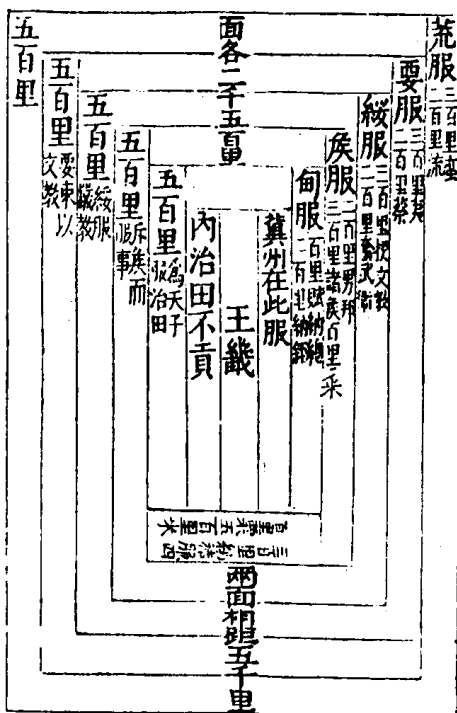 荒服 三百里蠻
二百里流
要服 三百里夷
二百里蔡
綏服 三百里揆文教
二百里奮武衛
侯服 二百里男邦
三百里諸侯百里采
甸服 百里賦納總
二百里納銍
冀州在此服
面各二千五百里
王畿
內治田不貢
五百里 為天子
服治田
五百里 斥候而
服事
五百里 綏服
教
五百里 要束以
文教
五百里
三百里納秸服四
百里粟五百里米
兩面相距五千里